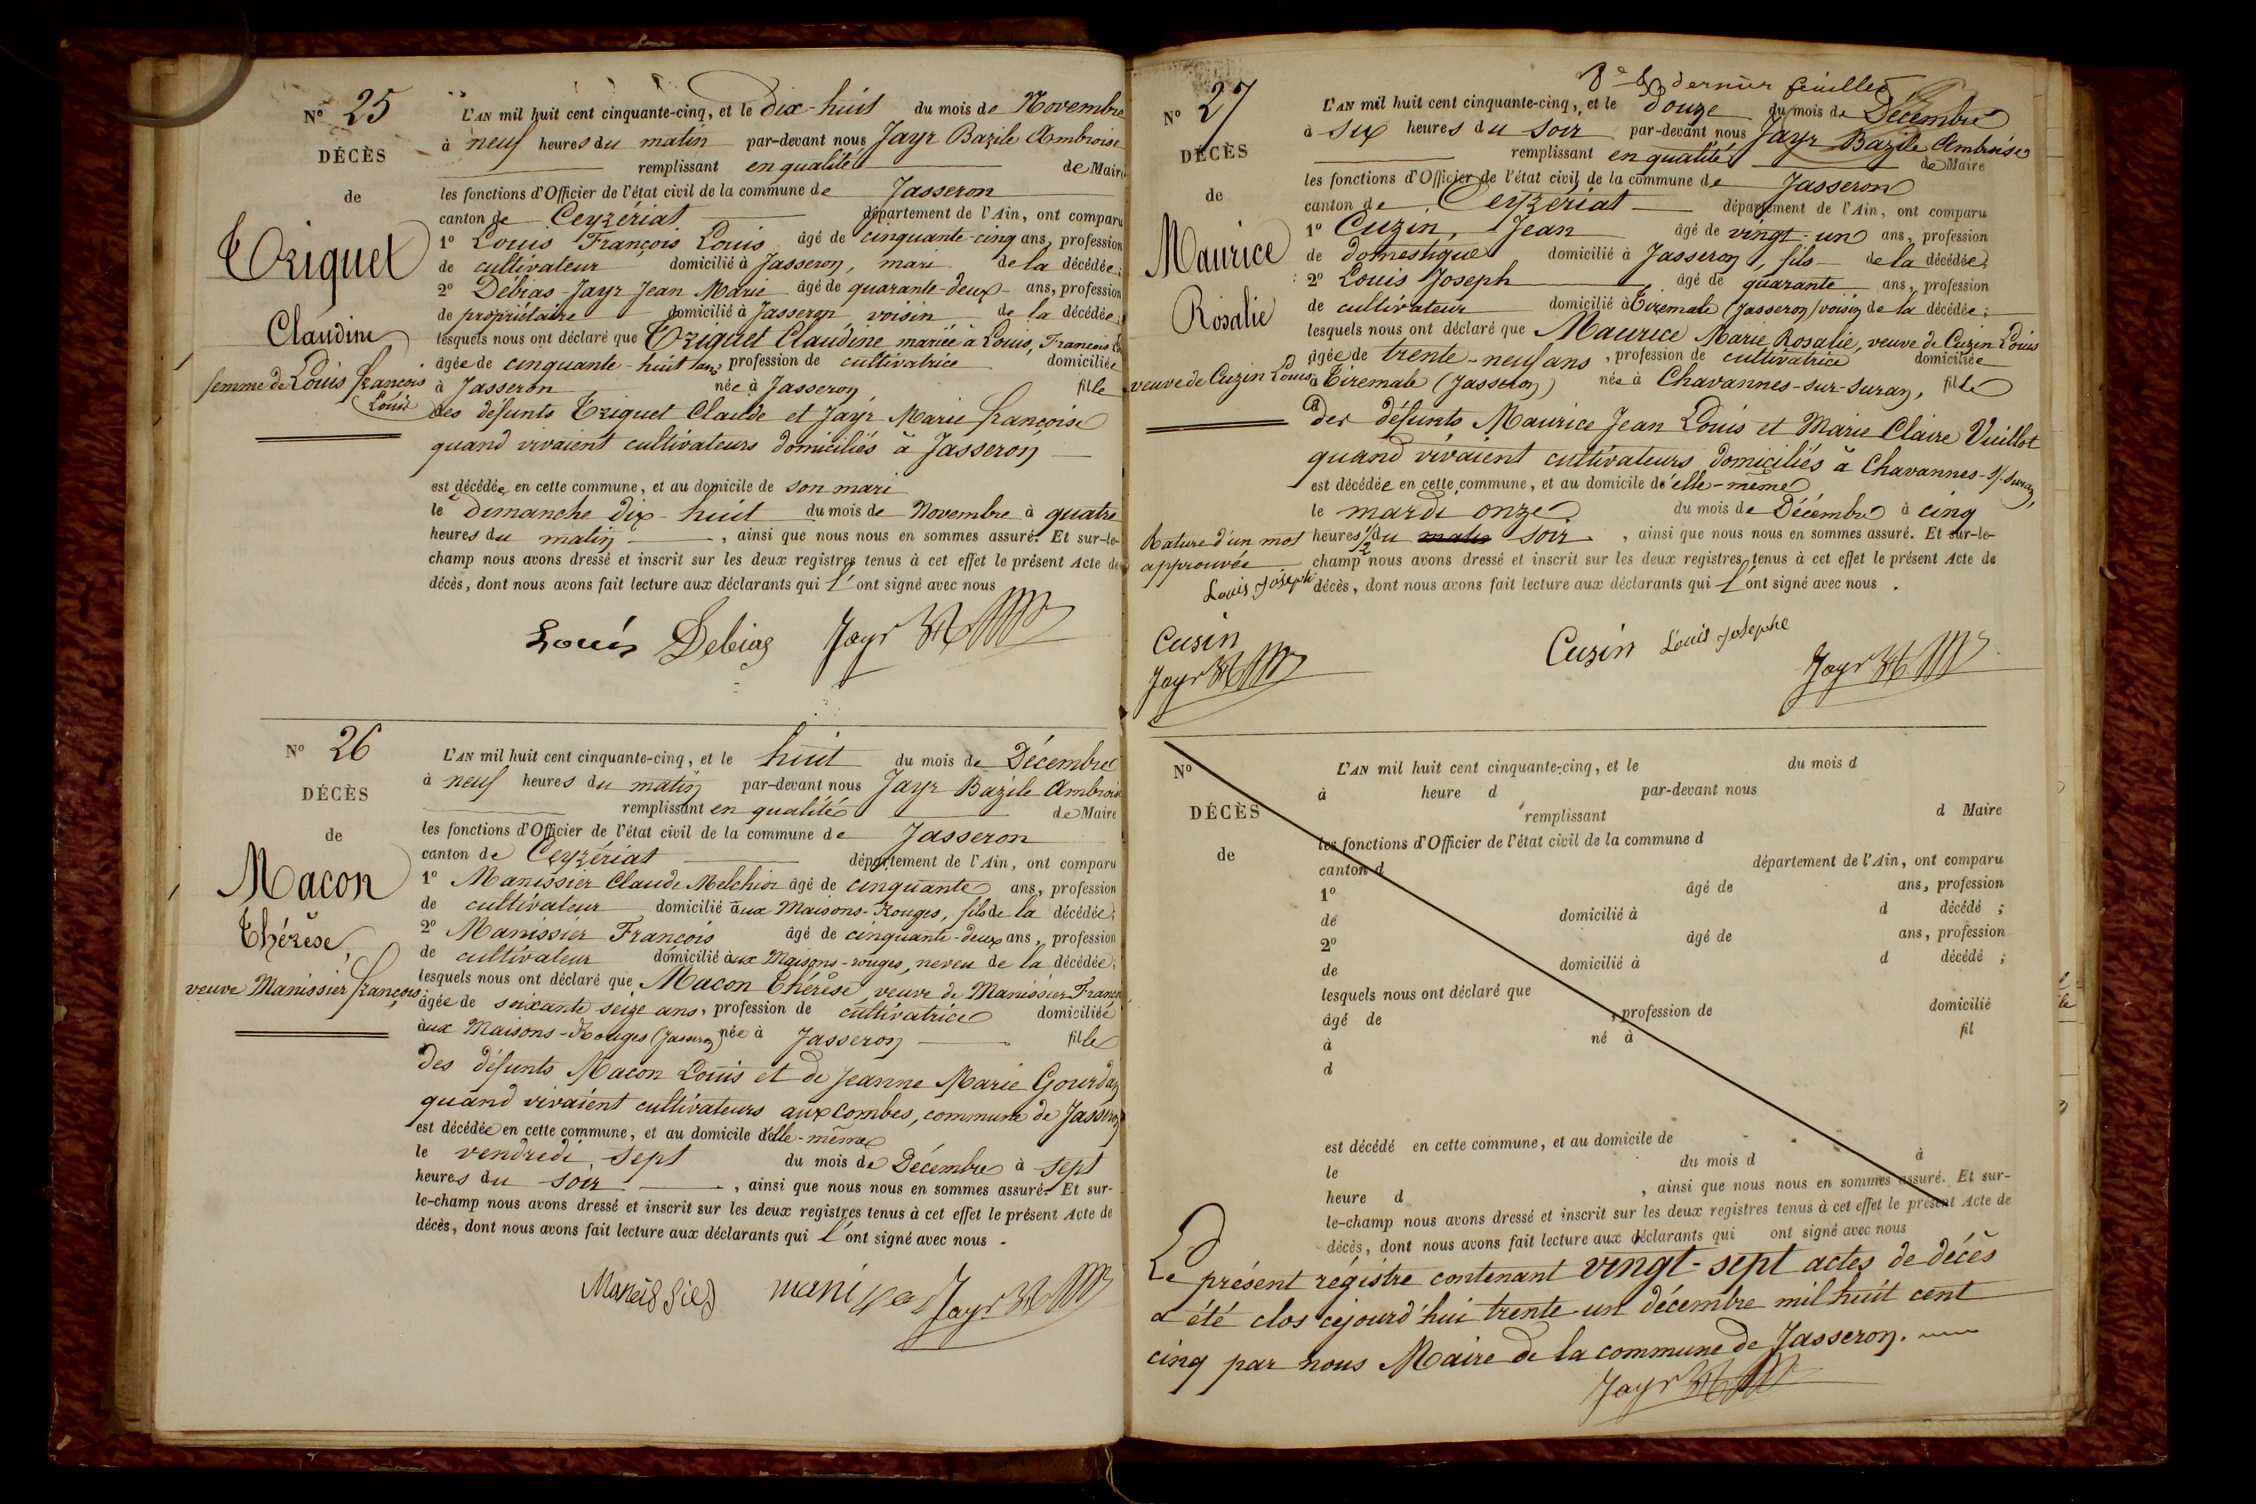 Nº 25
DÉCÈS
de
Triquet
Claudine
femme de Louis François
Louis
L'AN mil huit cent cinquante-cinq, et le dix-huit du mois de Novembre
à neuf heures du matin par-devant nous Jayr Bazile Ambroise
remplissant en qualité de Maire
les fonctions d'Officier de l'état civil de la commune de Jasseron
canton de Ceyzériat département de l'Ain, ont comparu
1º Louis François Louis âgé de cinquante-cinq ans, profession
de cultivateur domicilié à Jasseron, mari de la décédée;
2º Débias-Jayr Jean Marie âgé de quarante-deux ans, profession
de propriétaire domicilié à Jasseron voisin de la décédée;
lesquels nous ont déclaré que Triquet Claudine mariée à Louis, François
âgée de cinquante-huit ans, profession de cultivatrice domiciliée
à Jasseron née à Jasseron fille
des défunts Triquet Claude et Jayr Marie Françoise
quand vivaient cultivateurs domiciliés à Jasseron
est décédée en cette commune, et au domicile de son mari
le Dimanche dix-huit du mois de Novembre à quatre
heures du matin, ainsi que nous nous en sommes assuré. Et sur-le-
champ nous avons dressé et inscrit sur les deux registres tenus à cet effet le présent Acte de
décès, dont nous avons fait lecture aux déclarants qui l'ont signé avec nous
Louis Debias Jayr
Nº 26
DÉCÈS
de
Macon
Thérèse,
veuve Manissier François
L'AN mil huit cent cinquante-cinq, et le huit du mois de Décembre
à neuf heures du matin par-devant nous Jayr Bazile Ambroise
remplissant en qualité de Maire
les fonctions d'Officier de l'état civil de la commune de Jasseron
canton de Ceyzériat département de l'Ain, ont comparu
1º Manissier Claude Melchior âgé de cinquante ans, profession
de cultivateur domicilié aux Maisons-Rouges, fils de la décédée;
2º Manissier François âgé de cinquante-deux ans, profession
de cultivateur domicilié aux Maisons-rouges, neveu de la décédée;
lesquels nous ont déclaré que Macon Thérèse veuve de Manissier François
âgée de soixante seize ans, profession de cultivatrice domiciliée
aux Maisons-Rouges (Jasseron) née à Jasseron fille
Des défunts Macon Louis et de Jeanne Marie Gourdan
quand vivaient cultivateurs aux combes, commune de Jasseron
est décédée en cette commune, et au domicile d'elle-même
le vendredi sept du mois de Décembre à sept
heures du soir, ainsi que nous nous en sommes assuré. Et sur-
le-champ nous avons dressé et inscrit sur les deux registres tenus à cet effet le présent Acte de
décès, dont nous avons fait lecture aux déclarants qui l'ont signé avec nous.
Jayr
dernier feuillet
Nº 27
DÉCÈS
de
Maurice
Rosalie
veuve de Cuzin Louis
L'AN mil huit cent cinquante-cinq, et le douze du mois de Décembre
à six heures du soir par-devant nous Jayr Bazile Ambroise
remplissant en qualité de Maire
les fonctions d'Officier de l'état civil de la commune de Jasseron
canton de Ceyzériat département de l'Ain, ont comparu
1º Cuzin, Jean âgé de vingt-un ans, profession
de domestique domicilié à Jasseron, fils de la décédée;
2º Louis Joseph âgé de quarante ans, profession
de cultivateur domicilié à Tiremale (Jasseron) voisin de la décédée;
lesquels nous ont déclaré que Maurice Marie Rosalie, veuve de Cuzin Louis
âgée de trente-neuf ans, profession de cultivatrice domiciliée
à Tiremale (Jasseron) née à Chavannes-sur-Suran, fille
des défunts Maurice Jean Louis et Marie Claire Vieillot
quand vivaient cultivateurs domiciliés à Chavannes-s/-Suran,
est décédée en cette commune, et au domicile d'elle-même
le mardi onze du mois de Décembre à cinq
heures 1/2 du matin soir, ainsi que nous nous en sommes assuré. Et sur-le-
champ nous avons dressé et inscrit sur les deux registres tenus à cet effet le présent Acte de
décès, dont nous avons fait lecture aux déclarants qui l'ont signé avec nous.
Rature d'un mot
approuvée
Louis Joseph
Cusin
Jayr
Cusin Louis Josephe
Jayr
Nº
DÉCÈS
de
L'AN mil huit cent cinquante-cinq, et le du mois d
à heure d par-devant nous
remplissant d Maire
les fonctions d'Officier de l'état civil de la commune d
canton d département de l'Ain, ont comparu
1º âgé de ans, profession
de domicilié à d décédé ;
2º âgé de ans, profession
de domicilié à d décédé ;
lesquels nous ont déclaré que
âgé de , profession de domicilié
à né à fil
d
est décédé en cette commune, et au domicile de
le du mois d à
heure d , ainsi que nous nous en sommes assuré. Et sur-
le-champ nous avons dressé et inscrit sur les deux registres tenus à cet effet le présent Acte de
décès, dont nous avons fait lecture aux déclarants qui ont signé avec nous
Le présent régistre contenant vingt-sept actes de décès
a été clos cejourd'hui trente-un décembre mil huit cent
cinq par nous Maire de la commune de Jasseron.
Jayr